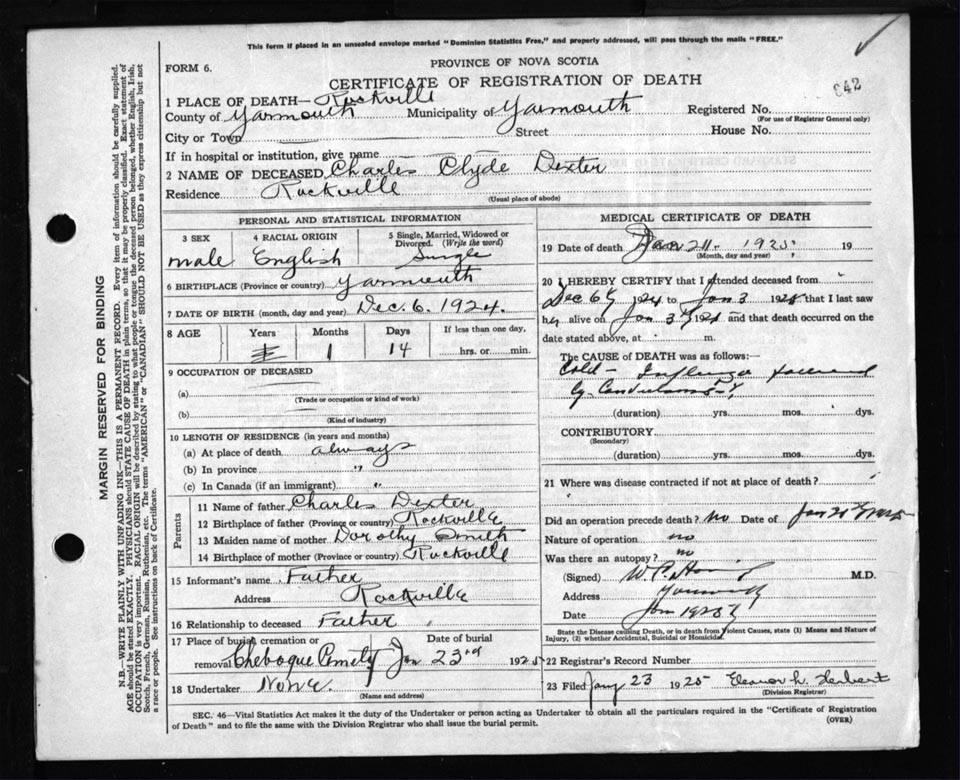 This form if placed in an unsealed envelope marked "Dominion Statistics Free," and properly addressed, will pass through the mails "FREE."
FORM 6.
PROVINCE OF NOVA SCOTIA
CERTIFICATE OF REGISTRATION OF DEATH
642
1 PLACE OF DEATH— Rockville
County of Yarmouth Municipality of Yarmouth Registered No.
(For use of Registrar General only)
City or Town Street House No.
If in hospital or institution, give name
2 NAME OF DECEASED Charles Clyde Dexter
Residence Rockville
(Usual place of abode)
PERSONAL AND STATISTICAL INFORMATION
3 SEX 4 RACIAL ORIGIN 5 Single, Married, Widowed or Divorced. (Write the word)
male English Single
6 BIRTHPLACE (Province or country) Yarmouth
7 DATE OF BIRTH (month, day and year) Dec. 6. 1924.
8 AGE Years Months Days If less than one day,
1 14 hrs. or min.
9 OCCUPATION OF DECEASED
(a)
(Trade or occupation or kind of work)
(b)
(Kind of industry)
10 LENGTH OF RESIDENCE (in years and months)
(a) At place of death always
(b) In province "
(c) In Canada (if an immigrant) "
Parents
11 Name of father Charles Dexter
12 Birthplace of father (Province or country) Rockville
13 Maiden name of mother Dorothy Smith
14 Birthplace of mother (Province or country) Rockville
15 Informant's name Father
Address Rockville
16 Relationship to deceased Father
17 Place of burial, cremation or removal Chebogue Date of burial Jan 23rd 1925
18 Undertaker None.
(Name and address)
MEDICAL CERTIFICATE OF DEATH
19 Date of death Jan 1925 19
(Month, day and year)
20 I HEREBY CERTIFY that I attended deceased from
Dec 6 1924 to Jan 3 1925 that I last saw
h alive on Jan 3 and that death occurred on
date stated above, at m.
The CAUSE OF DEATH was as follows:
Cold — Influenza followed
by
(duration) yrs. mos. dys.
CONTRIBUTORY
(Secondary)
(duration) yrs. mos. dys.
21 Where was disease contracted if not at place of death?
Did an operation precede death? no Date of Jan
Nature of operation no
Was there an autopsy? no
(Signed) W. M.D.
Address Yarmouth
Date Jan
State the Disease causing Death, or in death from Violent Causes, state (1) Means and Nature of
Injury, (2) whether Accidental, Suicidal or Homicidal.
22 Registrar's Record Number
23 Filed Jany 23 1925 Eleanor L. Herbert
(Division Registrar)
SEC. 46—Vital Statistics Act makes it the duty of the Undertaker or person acting as Undertaker to obtain all the particulars required in the "Certificate of Registration
of Death" and to file the same with the Division Registrar who shall issue the burial permit.
(OVER)
MARGIN RESERVED FOR BINDING
N.B.—WRITE PLAINLY WITH UNFADING INK—THIS IS A PERMANENT RECORD. Every item of information should be carefully supplied.
AGE should be stated EXACTLY. PHYSICIANS should STATE CAUSE OF DEATH in plain terms, so that it may be properly classified. Exact statement of
OCCUPATION is very important. RACIAL ORIGIN will be described by stating to what people or tongue the deceased person belonged, whether English, Irish,
Scotch, French, German, Russian, Ruthenian, etc. The terms "AMERICAN" or "CANADIAN" SHOULD NOT BE USED as they express citizenship but not
a race or people. See instructions on back of Certificate.